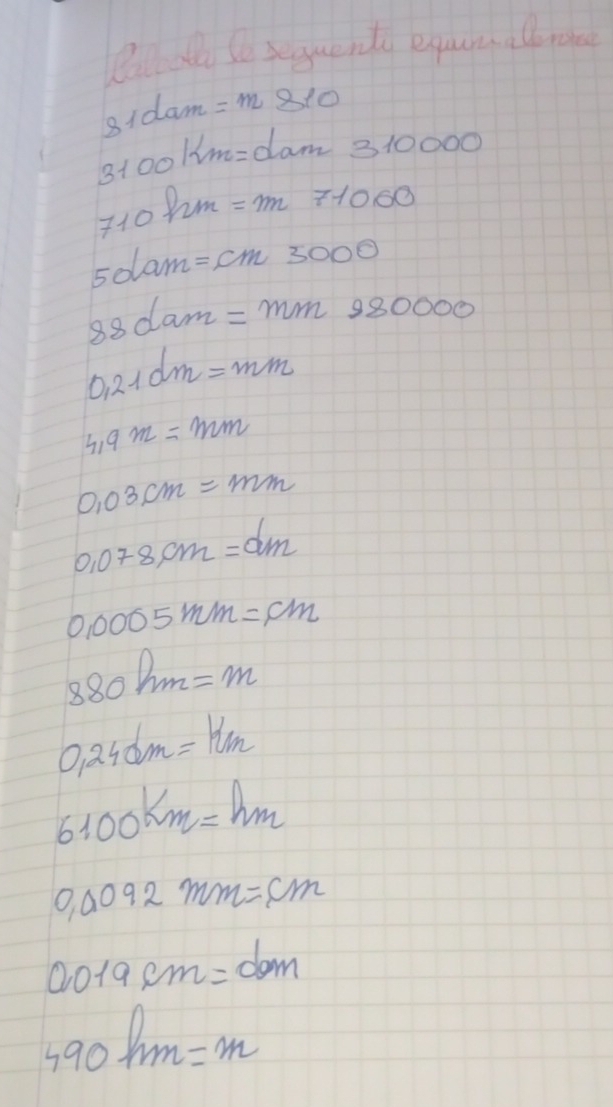 Calcola le seguenti equivalenze
81dam = m 810
3100 Km = dam 310000
710 hm = m 71000
5dam = cm 5000
88 dam = mm 880000
0,21 dm = mm
4,9 m = mm
0,03 cm = mm
0,078 cm = dm
0,0005 mm = cm
880 hm = m
0,24 dm = Km
6100 Km = hm
0,0092 mm = cm
0,019 cm = dam
490 hm = m